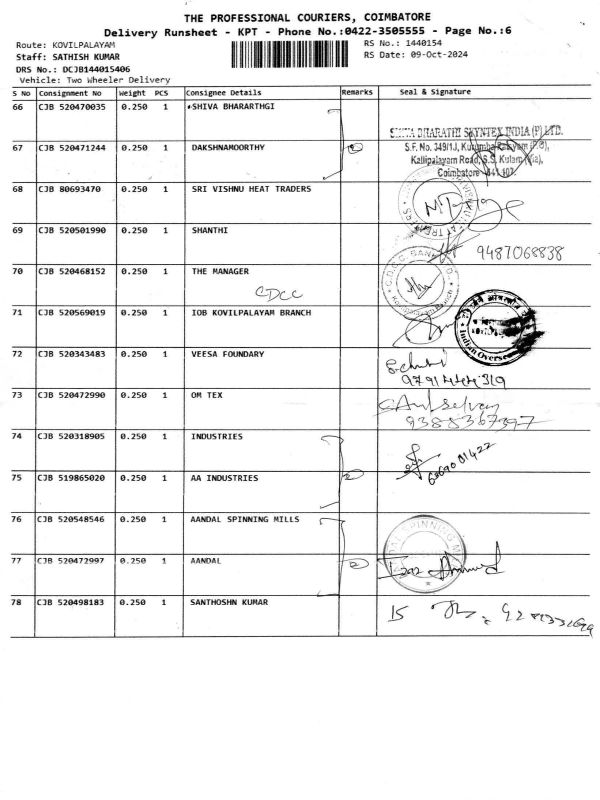 THE PROFESSIONAL COURIERS, COIMBATORE
Delivery Runsheet - KPT - Phone No.:0422-3505555 - Page No.:6
Route: KOVILPALAYAM RS No.: 1440154
Staff: SATHISH KUMAR RS Date: 09-Oct-2024
DRS No.: DCJB144015406
Vehicle: Two Wheeler Delivery
S No Consignment No Weight PCS Consignee Details Remarks Seal & Signature
66 CJB 520470035 0.250 1 SHIVA BHARARTHGI
SHIVA BHARATHI SKYNTEX INDIA (P) LTD.
67 CJB 520471244 0.250 1 DAKSHNAMOORTHY 2
S.F. No. 349/1J,
Kallipalayam Road, S.S. Kulam (Via),
Coimbatore - 641 107.
68 CJB 80693470 0.250 1 SRI VISHNU HEAT TRADERS
69 CJB 520501990 0.250 1 SHANTHI
9487068838
70 CJB 520468152 0.250 1 THE MANAGER
CDCC
71 CJB 520569019 0.250 1 IOB KOVILPALAYAM BRANCH
Indian Overse
72 CJB 520343483 0.250 1 VEESA FOUNDARY
73 CJB 520472990 0.250 1 OM TEX
9388367397
74 CJB 520318905 0.250 1 INDUSTRIES
6369001422
75 CJB 519865020 0.250 1 AA INDUSTRIES 2
76 CJB 520548546 0.250 1 AANDAL SPINNING MILLS
77 CJB 520472997 0.250 1 AANDAL 2
78 CJB 520498183 0.250 1 SANTHOSHN KUMAR